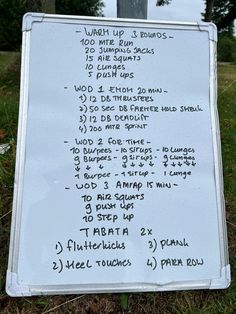 - WARM UP 3 ROUNDS -
100 MTR RUN
20 JUMPING JACKS
15 AIR SQUATS
10 LUNGES
5 PUSH UPS
- WOD 1 EMOM 20 MIN -
1) 12 DB THRUSTERS
2) 50 SEC DB FARMER HOLD
3) 12 DB DEADLIFT
4) 200 MTR SPRINT
- WOD 2 FOR TIME -
10 BURPEES - 10 SIRUPS - 10 LUNGES
9 BURPEES - 9 SIRUPS - 9 LUNGES
↓ ↓ ↓ ↓ ↓ ↓ ↓ ↓ ↓
1 BURPEE - 1 SIRUP - 1 LUNGE
- WOD 3 AMRAP 15 MIN -
10 AIR SQUATS
9 PUSH UPS
10 STEP UP
TABATA 2X
1) flutterkicks 3) PLANK
2) Heel TOUCHES 4) PARA ROW